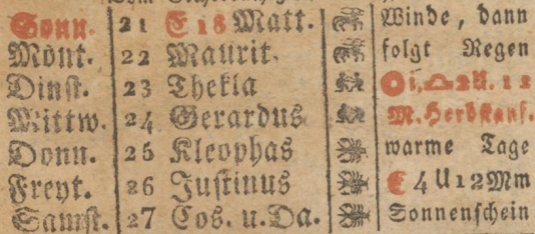 Sonn. 21 E 18 Matt. Winde, dann
Mont. 22 Maurit. folgt Regen
Dinst. 23 Thekla ☉ i. ♎ 2 U. 12
Mittw. 24 Gerardus M. Herbstanf.
Donn. 25 Kleophas warme Tage
Freyt. 26 Justinus ☾ 4 U 12 Mm
Samst. 27 Cos. u. Da. Sonnenschein